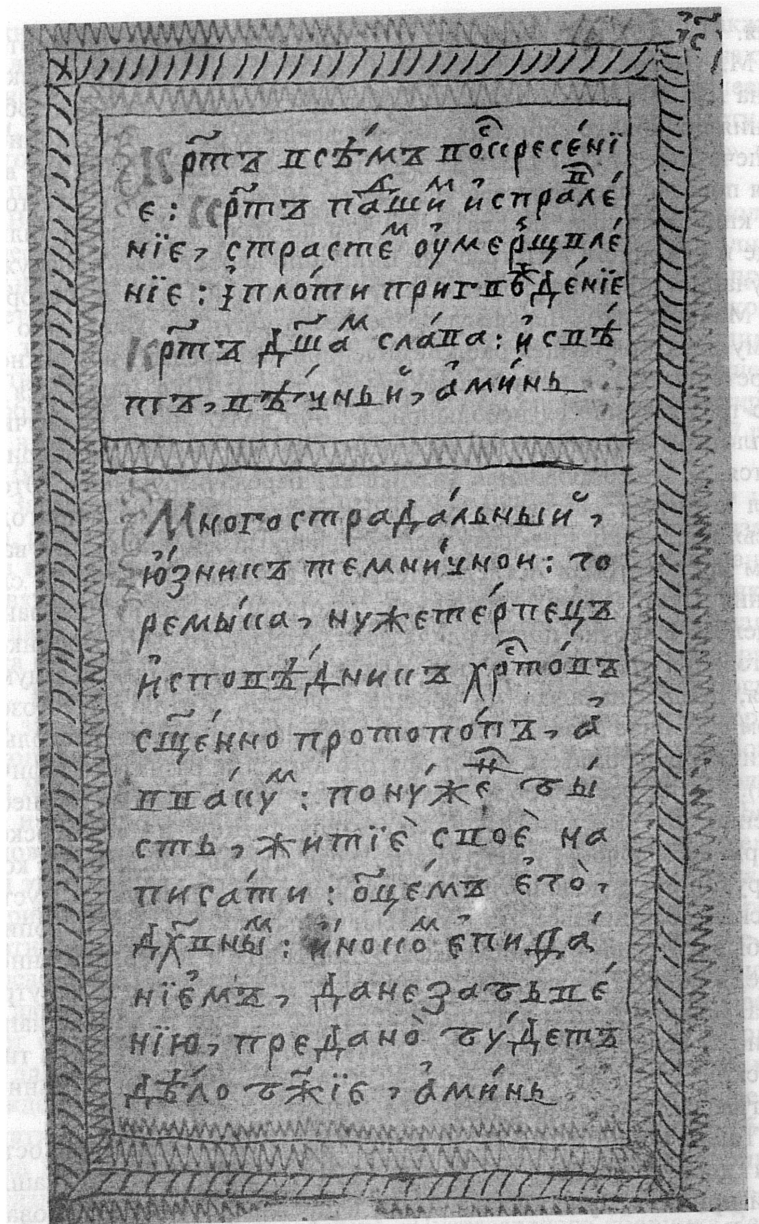 Кр҃тъ всѣ́мъ воⷭ҇кресе́нї
є: кр҃тъ па́ⷣшиⷨ и҆спраⷡ҇ле́
нїє, страстеⷨ ᲂу҆мерщвле́
нїє: і҆пло́ти пригвоⷤде́нїє
кр҃тъ дш҃аⷨ сла́ва: и҆ свѣ́
тъ, вѣ́чный, а҆ми́нь
Многострада́льный,
ю҆́зникъ темни́чнои: го
ремы́ка, нужетерпецъ
и҆сповѣ́дникъ хрⷭ҇то́въ
сщ҃е́нно протопо́пъ, а҆
вва́куⷨ: пону́жеⷩ҇ бы́
сть, житїѐ своѐ на
писа́ти: ѻ҆ц҃е́мъ є҆гѡ̀,
дх҃вныⷨ: и҆́нокоⷨ є҆пиѳа́
нїємъ, данезабьве́
нїю, предано̀ бу́детъ
дѣ́ло бж҃їє, а҆ми́нь